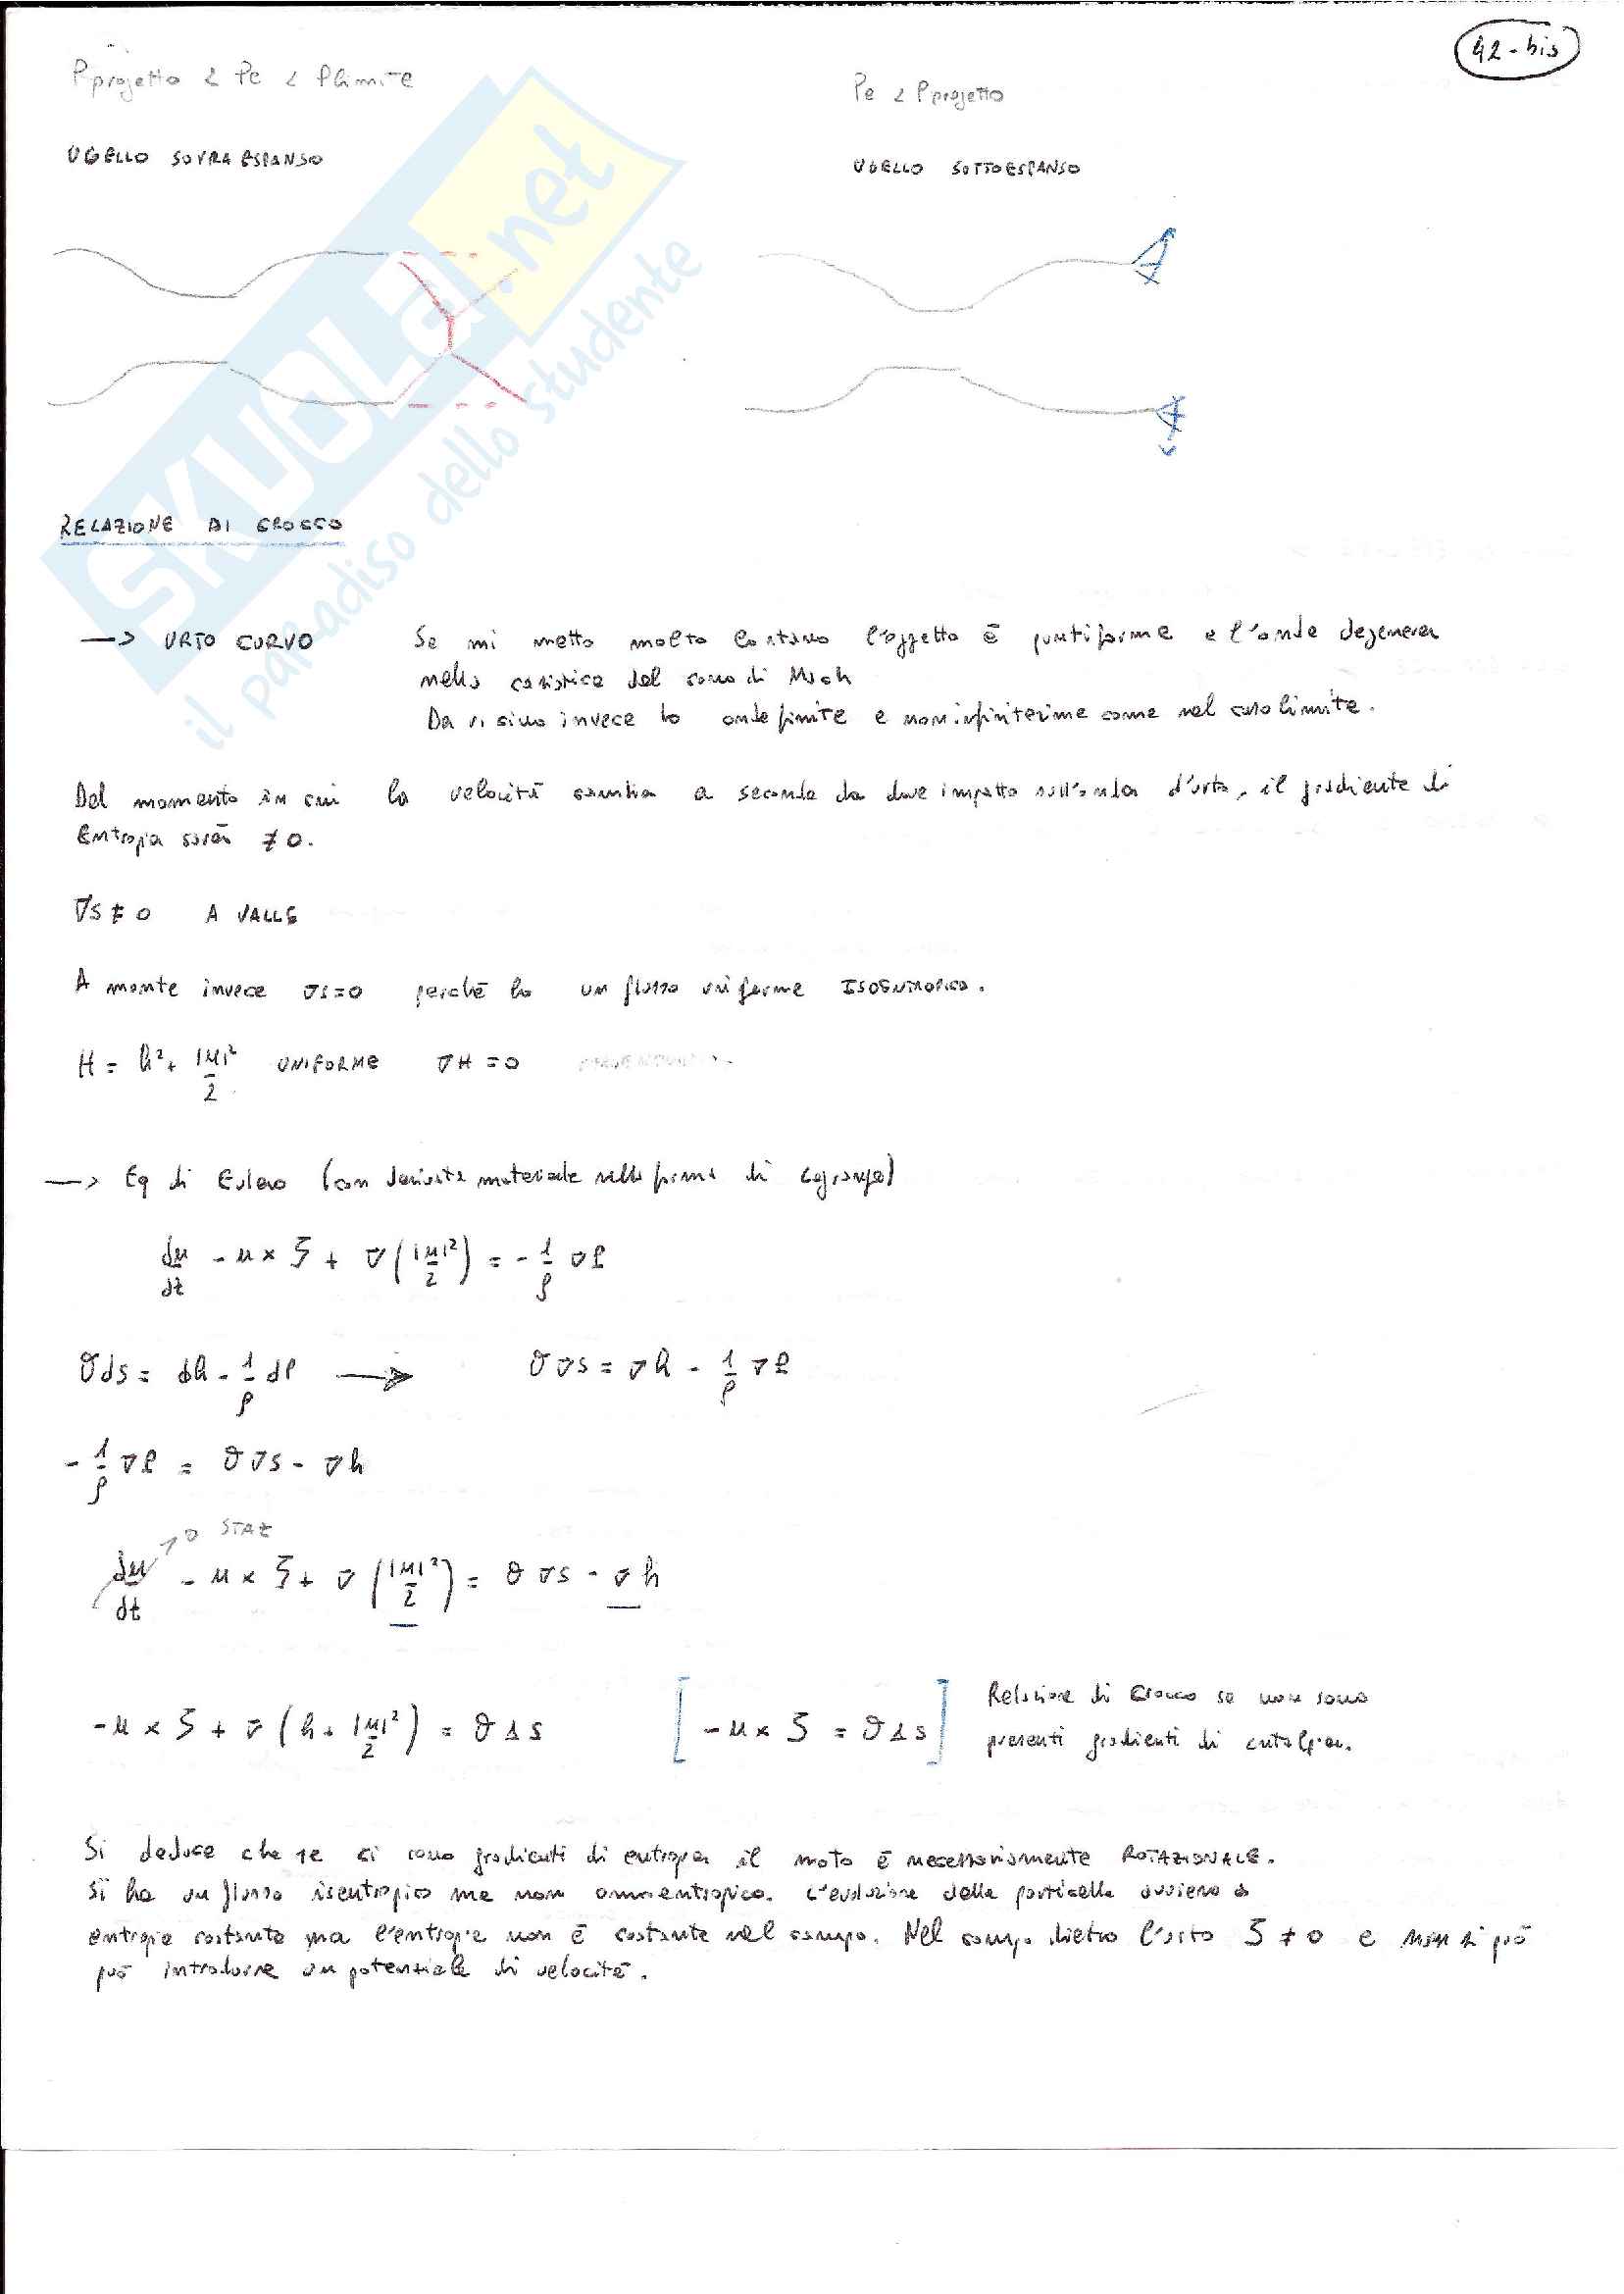 42-bis
Pprogetto < Pe < Plimite
Pe < Pprogetto
UGELLO SOVRAESPANSO
UGELLO SOTTOESPANSO
SKUOLa.net
il paradiso dello studente
RELAZIONE DI CROCCO
—> URTO CURVO Se mi metto molto lontano l'oggetto è puntiforme e l'onda degenera
nella casistica del cono di Mach
Da vicino invece ho onde finite e non infinitesime come nel caso limite.
Dal momento in cui la velocità cambia a seconda da dove impatto sull'onda d'urto, il gradiente di
Entropia sarà ≠ 0.
∇S ≠ 0 A VALLE
A monte invece ∇S=0 perché ho un flusso uniforme ISOENTROPICO.
H = h² + |u|²/2 UNIFORME ∇H = 0
—> Eq di Eulero (con derivata materiale nella forma di Lagrange)
du/dt - u × ζ + ∇(|u|²/2) = - 1/ρ ∇P
ϑds = dh - 1/ρ dP —> ϑ∇s = ∇h - 1/ρ ∇P
- 1/ρ ∇P = ϑ∇s - ∇h
0 STAZ
du/dt - u × ζ + ∇(|u|²/2) = ϑ∇s - ∇h
-u × ζ + ∇(h + |u|²/2) = ϑ∆s [-u × ζ = ϑ∆s] Relazione di Crocco se non sono
presenti gradienti di entalpia.
Si deduce che se ci sono gradienti di entropia il moto è necessariamente ROTAZIONALE.
Si ha un flusso isentropico ma non omoentropico. L'evoluzione delle particelle avviene a
entropia costante ma l'entropia non è costante nel campo. Nel campo dietro l'urto ζ ≠ 0 e non si può
può introdurre un potenziale di velocità.